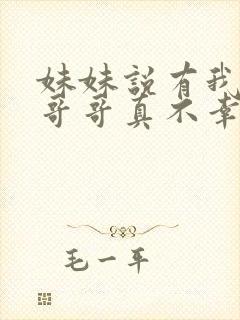 妹妹说有我
哥哥真不幸
毛一平